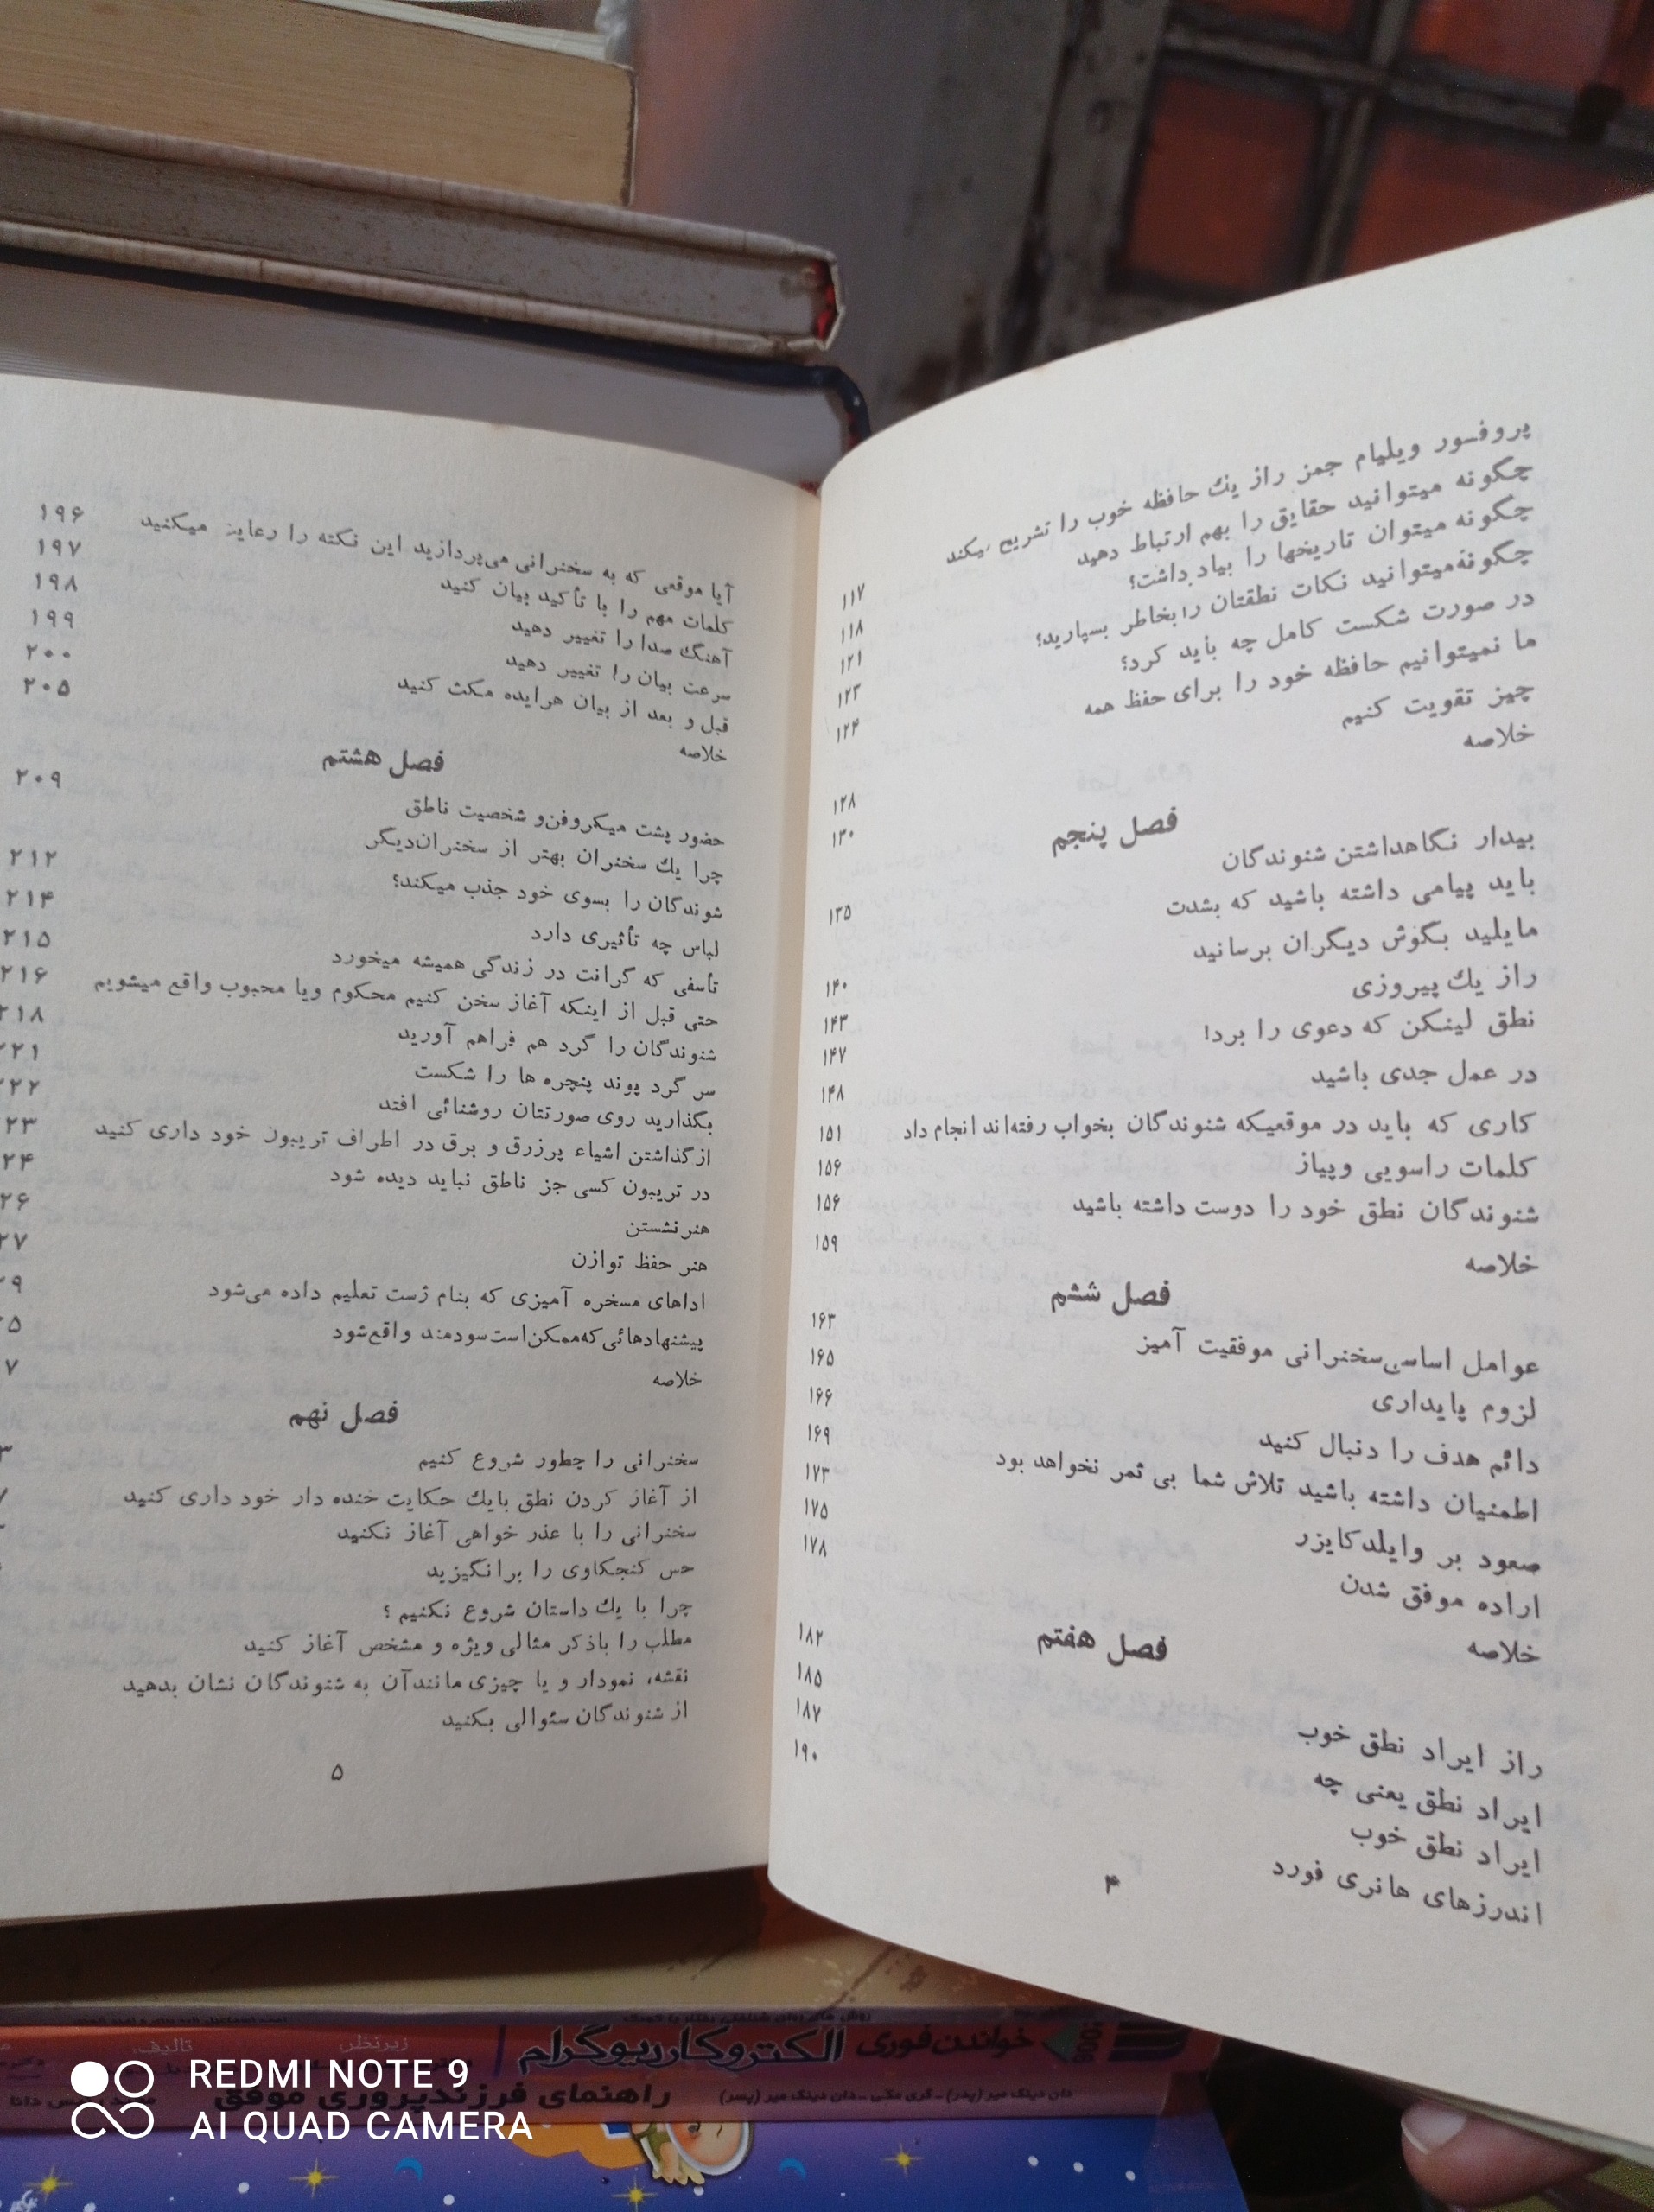 پروفسور ویلیام جمز راز یك حافظه خوب را تشریح میکند ۱۱۷
چگونه میتوانید حقایق را بهم ارتباط دهید ۱۱۸
چگونه میتوان تاریخها را بیاد داشت؟ ۱۲۱
چگونه‌میتوانید نکات نطقتان را بخاطر بسپارید؛ ۱۲۳
در صورت شکست کامل چه باید کرد؟ ۱۲۴
ما نمیتوانیم حافظه خود را برای حفظ همه
چیز تقویت کنیم ۱۲۸
خلاصه ۱۳۰
فصل پنجم
بیدار نگاهداشتن شنوندگان ۱۳۵
باید پیامی داشته باشید که بشدت
مایلید بگوش دیگران برسانید ۱۴۰
راز یك پیروزی ۱۴۳
نطق لینکن که دعوی را برد! ۱۴۷
در عمل جدی باشید ۱۴۸
کاری که باید در موقعیکه شنوندگان بخواب رفته‌اند انجام داد ۱۵۱
کلمات راسویی وپیاز ۱۵۶
شنوندگان نطق خود را دوست داشته باشید ۱۵۶
خلاصه ۱۵۹
فصل ششم
عوامل اساسی‌سخنرانی موفقیت آمیز ۱۶۳
لزوم پایداری ۱۶۵
دائم هدف را دنبال کنید ۱۶۶
اطمنیان داشته باشید تلاش شما بی ثمر نخواهد بود ۱۶۹
صعود بر وایلدکایزر ۱۷۳
اراده موفق شدن ۱۷۵
خلاصه ۱۷۸
فصل هفتم
راز ایراد نطق خوب ۱۸۲
ایراد نطق یعنی چه ۱۸۵
ایراد نطق خوب ۱۸۷
اندرزهای هانری فورد ۱۹۰
۴
آیا موقعی که به سخنرانی می‌پردازید این نکته را رعایت میکنید ۱۹۶
کلمات مهم را با تأکید بیان کنید ۱۹۷
آهنگ صدا را تغییر دهید ۱۹۸
سرعت بیان را تغییر دهید ۱۹۹
قبل و بعد از بیان هرایده مکث کنید ۲۰۰
خلاصه ۲۰۵
فصل هشتم
حضور پشت میکروفن‌و شخصیت ناطق ۲۰۹
چرا یك سخنران بهتر از سخنران‌دیگر
شوندگان را بسوی خود جذب میکند؟ ۲۱۲
لباس چه تأثیری دارد ۲۱۴
تأسفی که گرانت در زندگی همیشه میخورد ۲۱۵
حتی قبل از اینکه آغاز سخن کنیم محکوم ویا محبوب واقع میشویم ۲۱۶
شنوندگان را گرد هم فراهم آورید ۲۱۸
سر گرد پوند پنچره ها را شکست ۲۲۱
بگذارید روی صورتتان روشنائی افتد ۲۲
از گذاشتن اشیاء پرزرق و برق در اطراف تریبون خود داری کنید ۲۳
در تریبون کسی جز ناطق نباید دیده شود ۲۴
هنر نشستن ۲۶
هنر حفظ توازن ۲۷
اداهای مسخره آمیزی که بنام ژست تعلیم داده می‌شود ۲۹
پیشنهادهائی که‌ممکن‌است‌سودمند واقع‌شود ۵
خلاصه ۷
فصل نهم
سخنرانی را چطور شروع کنیم ۳
از آغاز کردن نطق بایك حکایت خنده دار خود داری کنید
سخنرانی را با عذر خواهی آغاز نکنید
حس کنجکاوی را برانگیزید
چرا با یك داستان شروع نکنیم ؟
مطلب را باذکر مثالی ویژه و مشخص آغاز کنید
نقشه، نمودار و یا چیزی مانندآن به شنوندگان نشان بدهید
از شنوندگان سئوالی بکنید
۵
خواندن فوری الکتروکاردیوگرام
زیرنظر:
تالیف:
راهنمای فرزندپروری موفق
REDMI NOTE 9
AI QUAD CAMERA